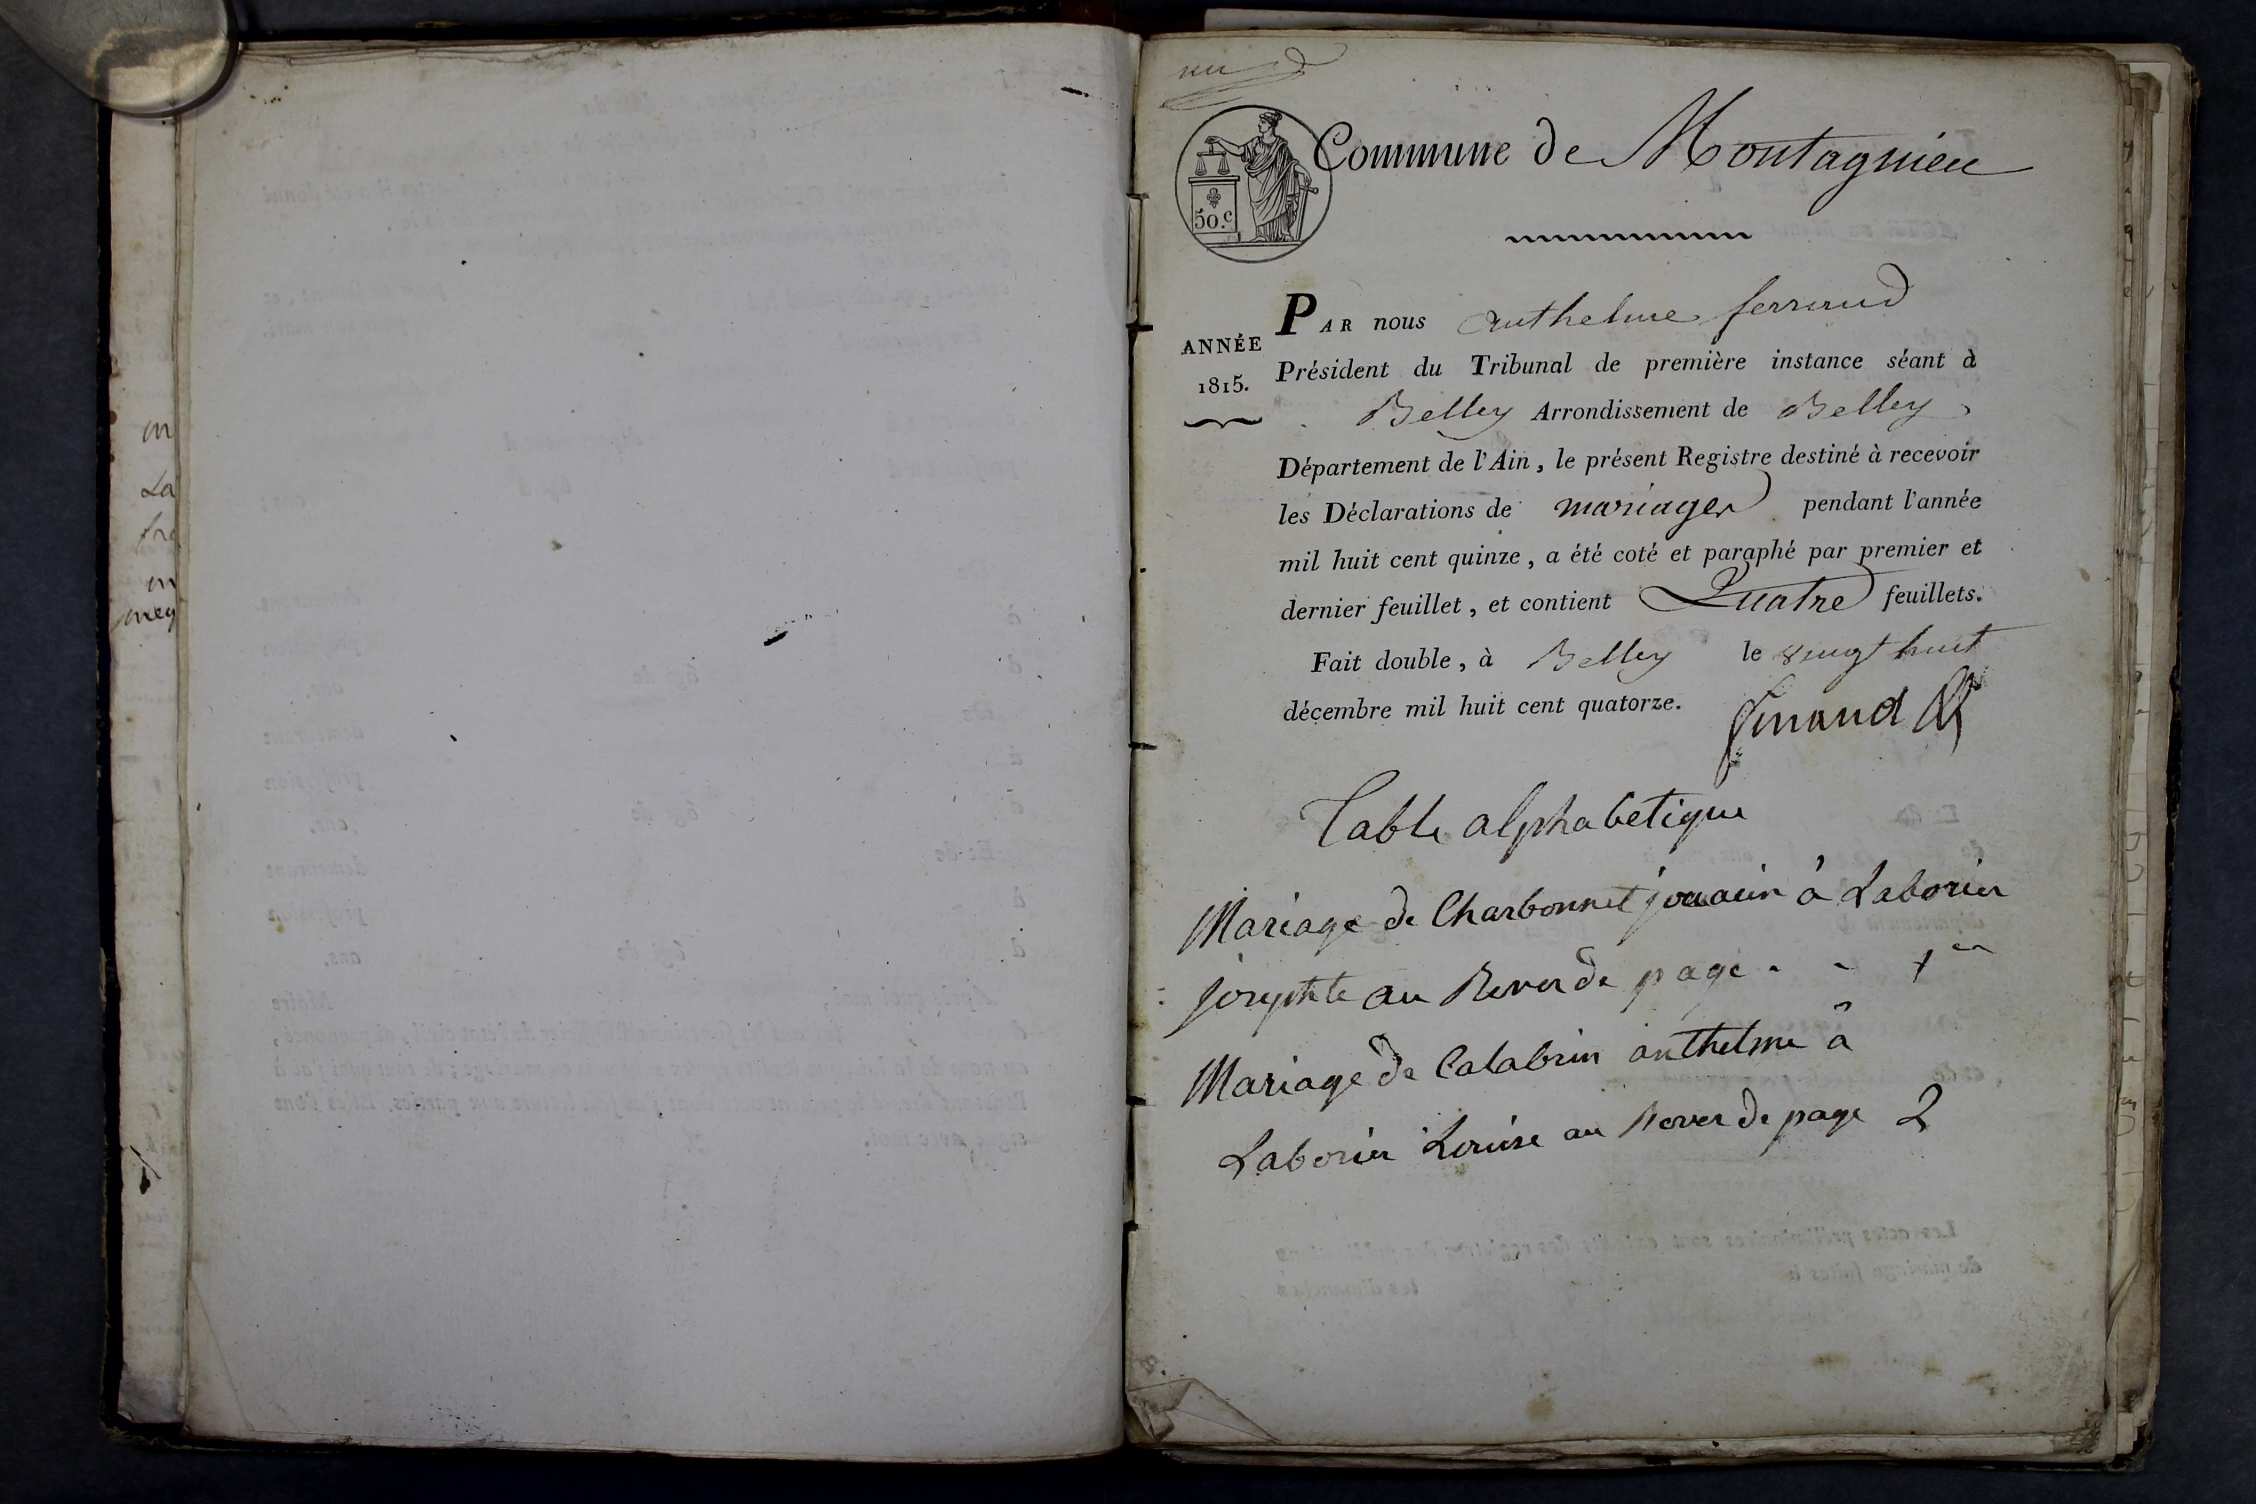 Commune de Montagnieu
50.c
ANNÉE
1815.
PAR nous anthelme ferrand
Président du Tribunal de première instance séant à
Belley Arrondissement de Belley,
Département de l'Ain, le présent Registre destiné à recevoir
les Déclarations de mariages pendant l'année
mil huit cent quinze, a été coté et paraphé par premier et
dernier feuillet, et contient Quatre feuillets.
Fait double, à Belley le vingt huit
décembre mil huit cent quatorze.
Table alphabetique
Mariage de Charbonnet à Laborier
josephte au Rever de page . . 1er
Mariage de Calabrin anthelme à
Laborier Louise au Rever de page 2